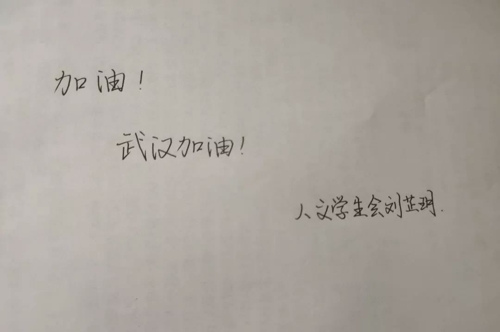 加油!
武汉加油!
人文学生会刘芷玥.